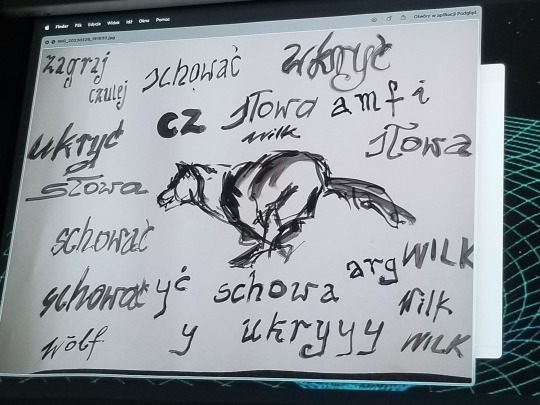 Finder Plik Edycja Widok Idź Okno Pomoc
Otwórz w aplikacji Podgląd
zagraj schować ukryć
czulej
cz słowa amfi
wilk
ukryć słowa
słowa
schować
arg WILK
schować yć schowa
wilk
wölf y ukryyy WILK